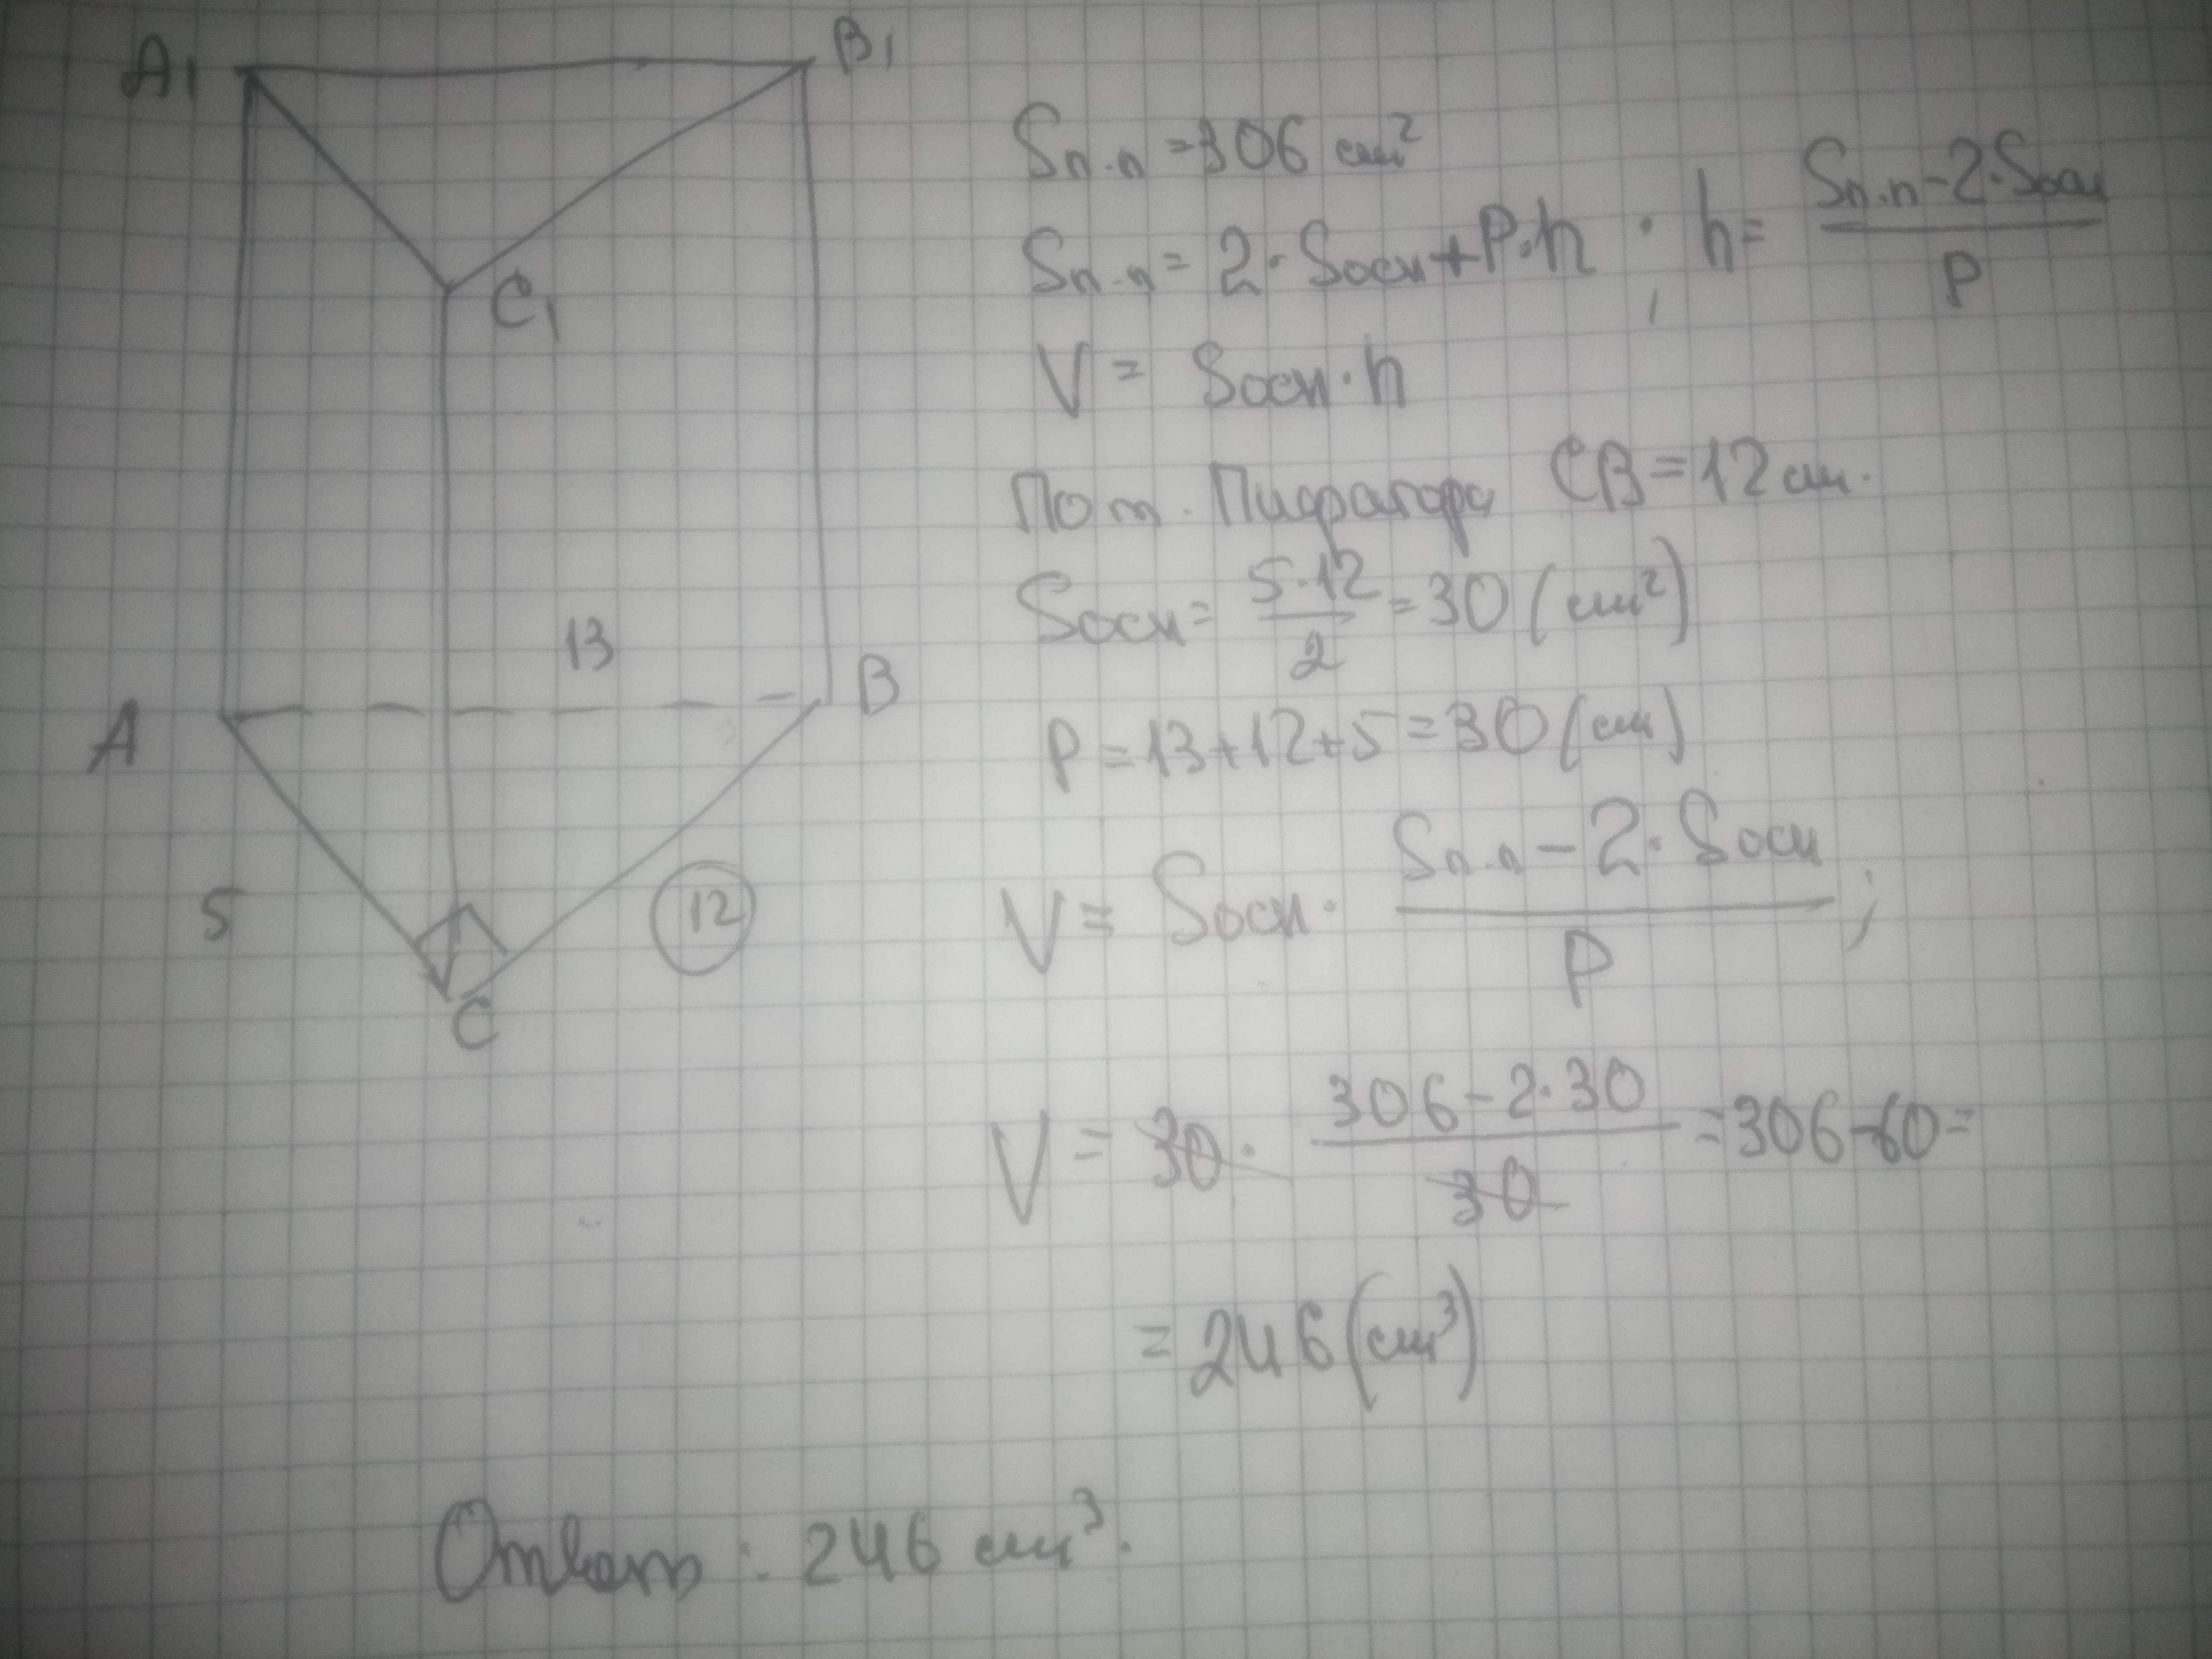 A₁
B₁
C₁
13
A
B
5
12
C
Sп.п = 306 см²
Sп.п = 2·Sосн + P·h ; h = (Sп.п - 2·Sосн)/P
V = Sосн·h
По т. Пифагора CB = 12 см.
Sосн = 5·12/2 = 30 (см²)
P = 13+12+5 = 30 (см)
V = Sосн · (Sп.п - 2·Sосн)/P ;
V = 30 · (306 - 2·30)/30 = 306 - 60 =
= 246 (см³)
Ответ : 246 см³.